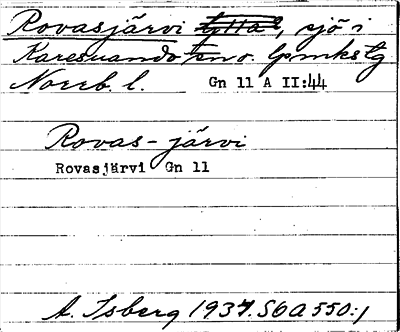 Rovasjärvi, sjö i
Karesuando sn o. lpmkstg
Norrb. l. Gn 11 A II:44
Rovas-järvi
Rovasjärvi Gn 11
A. Isberg 1937. S6A550:1